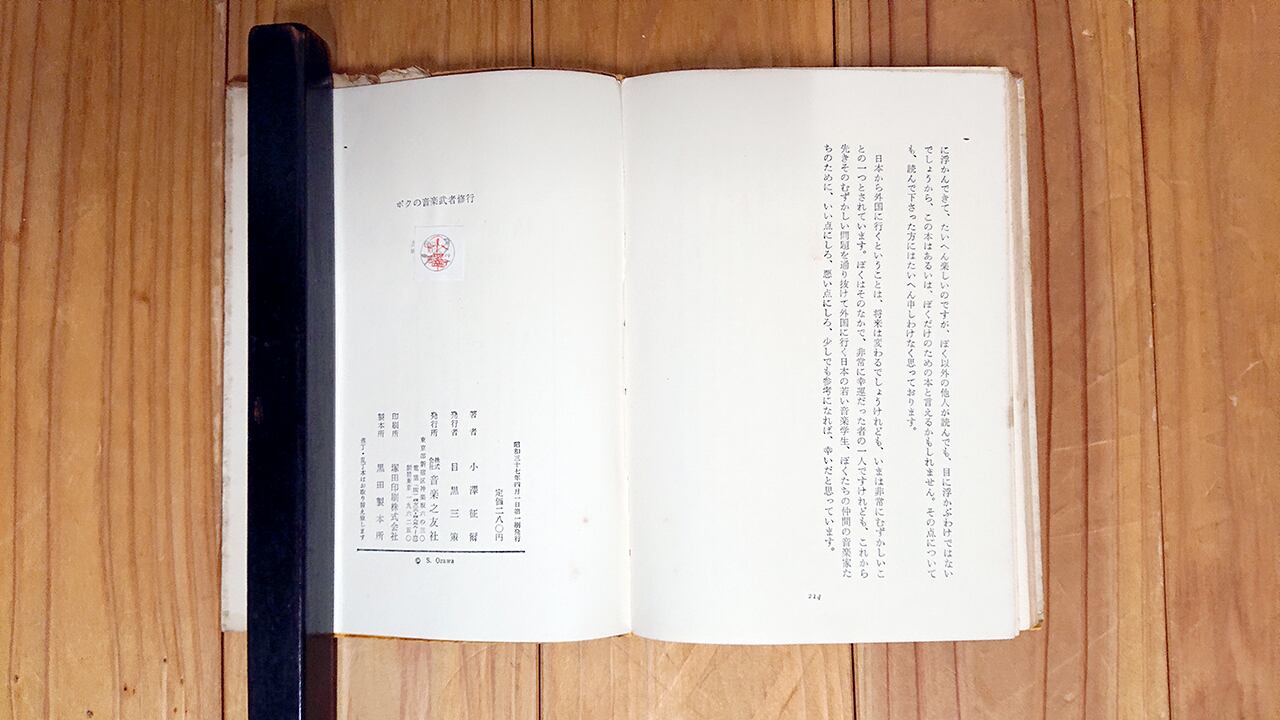 に浮かんできて、たいへん楽しいのですが、ぼく以外の他人が読んでも、目に浮かぶわけではない
でしょうから、この本はあるいは、ぼくだけのための本と言えるかもしれません。その点について
も、読んで下さった方にはたいへん申しわけなく思っております。
日本から外国に行くということは、将来は変わるでしょうけれども、いまは非常にむずかしいこ
との一つとされています。ぼくはそのなかで、非常に幸運だった者の一人ですけれども、これから
先きそのむずかしい問題を通り抜けて外国に行く日本の若い音楽学生、ぼくたちの仲間の音楽家た
ちのために、いい点にしろ、悪い点にしろ、少しでも参考になれば、幸いだと思っています。
214
ボクの音楽武者修行
小澤
昭和三十七年四月一日第一刷発行
定価二八〇円
著者 小澤征爾
発行者 目黒三策
発行所 株式会社 音楽之友社
東京都新宿区神楽坂六の三〇
印刷所 塚田印刷株式会社
製本所 黒田製本所
落丁・乱丁本はお取り替え致します
© S. Ozawa